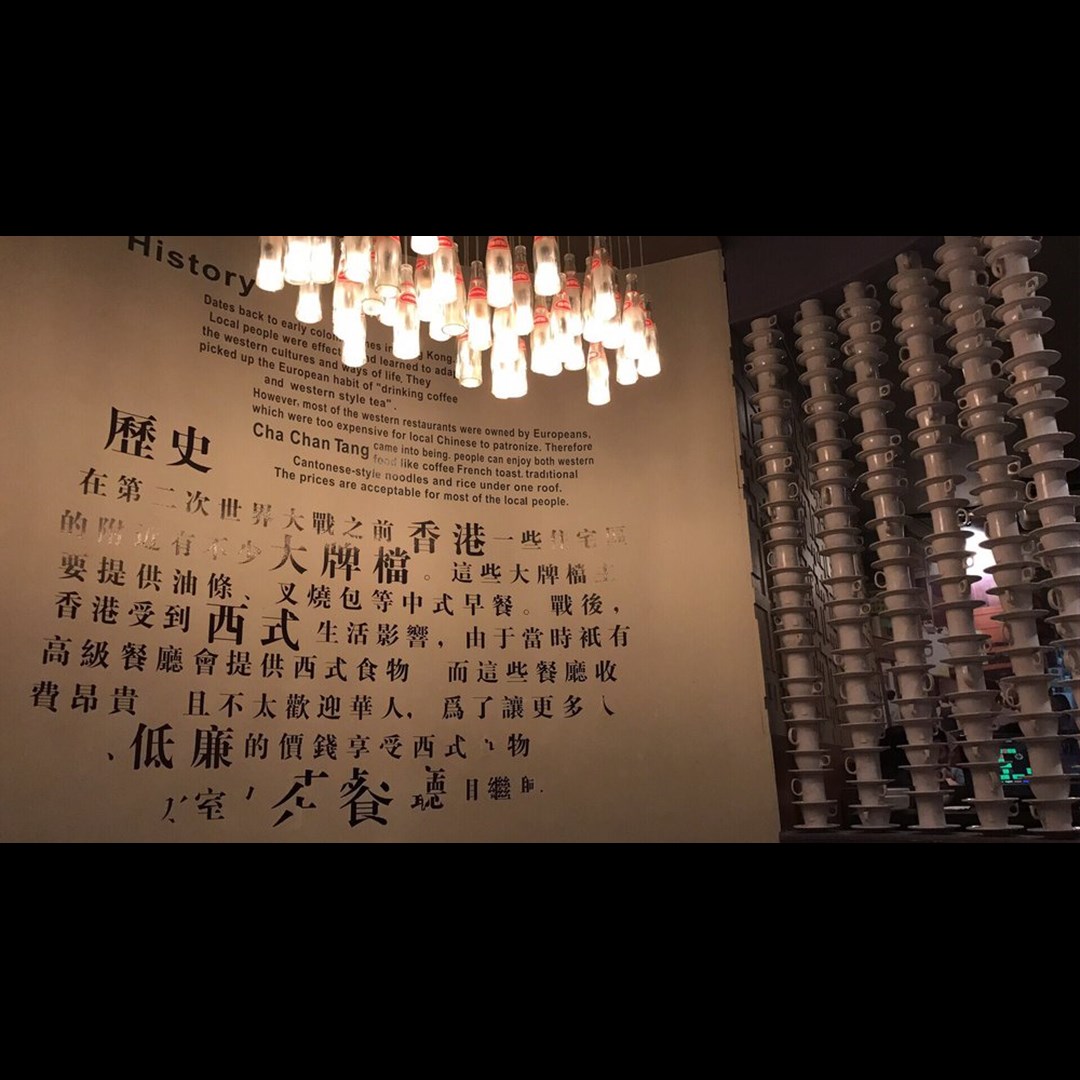 History
Dates back to early in Kong.
Local people were and learned to
the western cultures and ways of life. They
picked up the European habit of "drinking coffee
and western style tea".
However, most of the western restaurants were owned by Europeans,
which were too expensive for local Chinese to patronize. Therefore
Cha Chan Tang came into being. people can enjoy both western
food like coffee French toast. traditional
Cantonese-style noodles and rice under one roof.
The prices are acceptable for most of the local people.
歷史
在第二次世界大戰之前香港一些住宅區
的附近有不少大牌檔。這些大牌檔主
要提供油條、叉燒包等中式早餐。戰後，
香港受到西式生活影響，由于當時祇有
高級餐廳會提供西式食物 而這些餐廳收
費昂貴 且不太歡迎華人，爲了讓更多
低廉的價錢享受西式 物
室 餐 繼